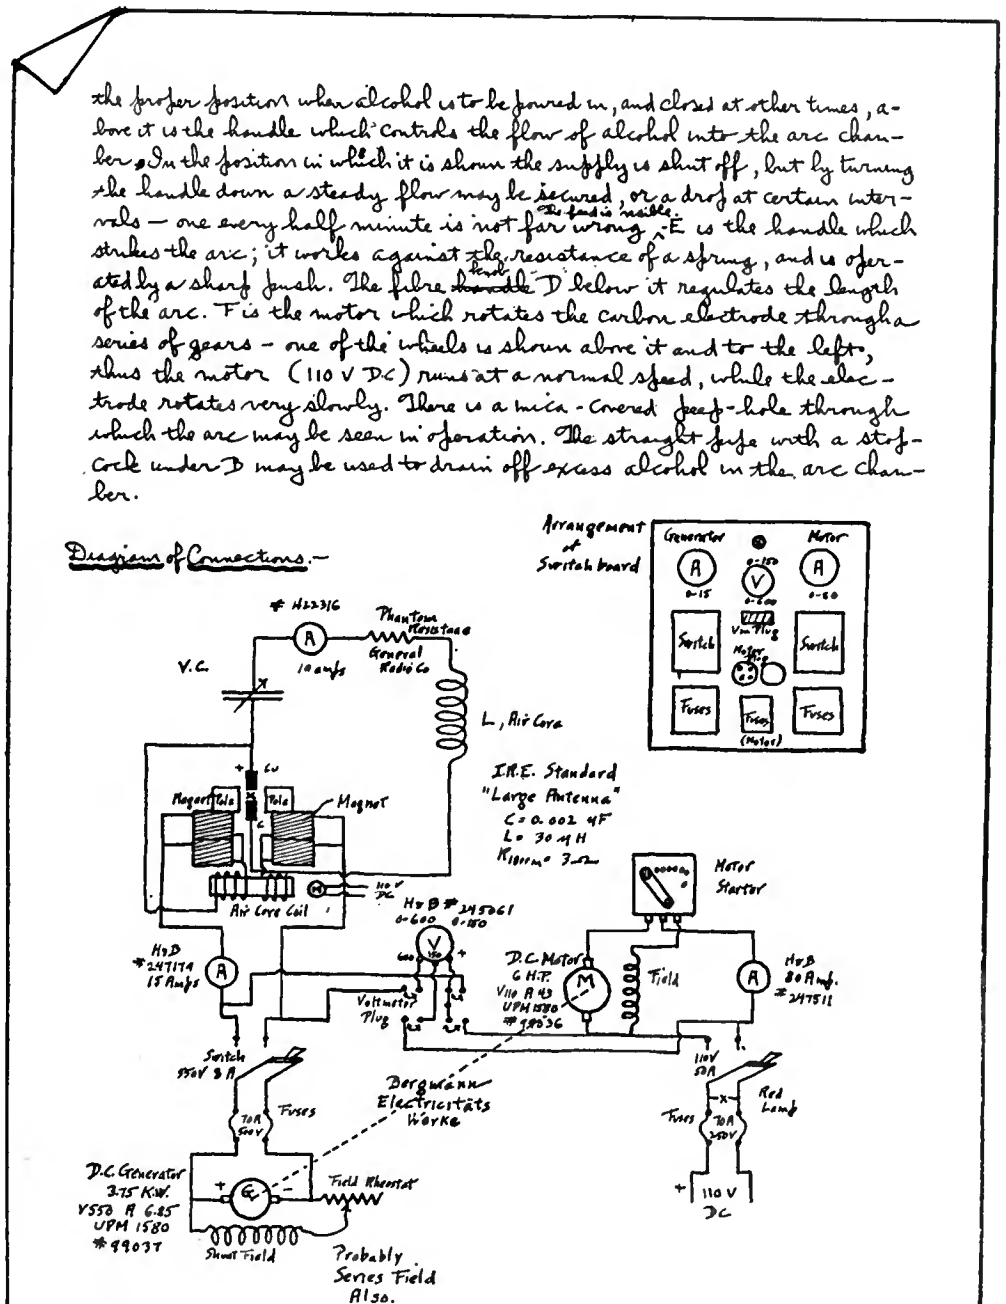 the proper position when alcohol is to be poured in, and closed at other times, a-
bove it is the handle which controls the flow of alcohol into the arc cham-
ber. In the position in which it is shown the supply is shut off, but by turning
the handle down a steady flow may be secured, or a drop at certain inter-
The feed is visible.
vals — one every half minute is not far wrong. E is the handle which
strikes the arc; it works against the resistance of a spring, and is oper-
knob
ated by a sharp push. The fibre handle D below it regulates the length
of the arc. F is the motor which rotates the carbon electrode through a
series of gears — one of the wheels is shown above it and to the left,
thus the motor (110 V D.C) runs at a normal speed, while the elec-
trode rotates very slowly. There is a mica-covered peep-hole through
which the arc may be seen in operation. The straight pipe with a stop-
cock under D may be used to drain off excess alcohol in the arc cham-
ber.
Diagram of Connections.—
Arrangement
of
Switchboard
Generator
Motor
A
0-15
0-150
V
0-600
A
0-80
Vm Plug
Switch
Motor
Plug
Switch
Fuses
Fuses
(Motor)
Fuses
# H22316
A
10 amps
Phantom
Resistance
General
Radio Co
V.C.
L, Air Core
+ Cu
Magnet
Pole
X
Pole
Magnet
C
I.R.E. Standard
"Large Antenna"
C = 0.002 μF
L = 30 μH
3 Ω
M
110 V
DC
Air Core Coil
H&B # 245061
0-600 0-150
V
600
150
+
Motor
Starter
H&B
# 247174
15 Amps
A
Voltmeter
Plug
D.C. Motor
6 H.P.
V110 A 43
UPM 1580
# 99036
M
Field
A
H&B
80 Amp.
# 247511
Switch
550V 8 A
110V
50A
Red
Lamp
X
Bergmann
Electricitäts
Werke
70A
500V
Fuses
Fuses
70A
250V
+
110 V
DC
D.C. Generator
3.75 K.W.
V550 A 6.85
UPM 1580
# 99037
+
G
-
Field Rheostat
Shunt Field
Probably
Series Field
Also.